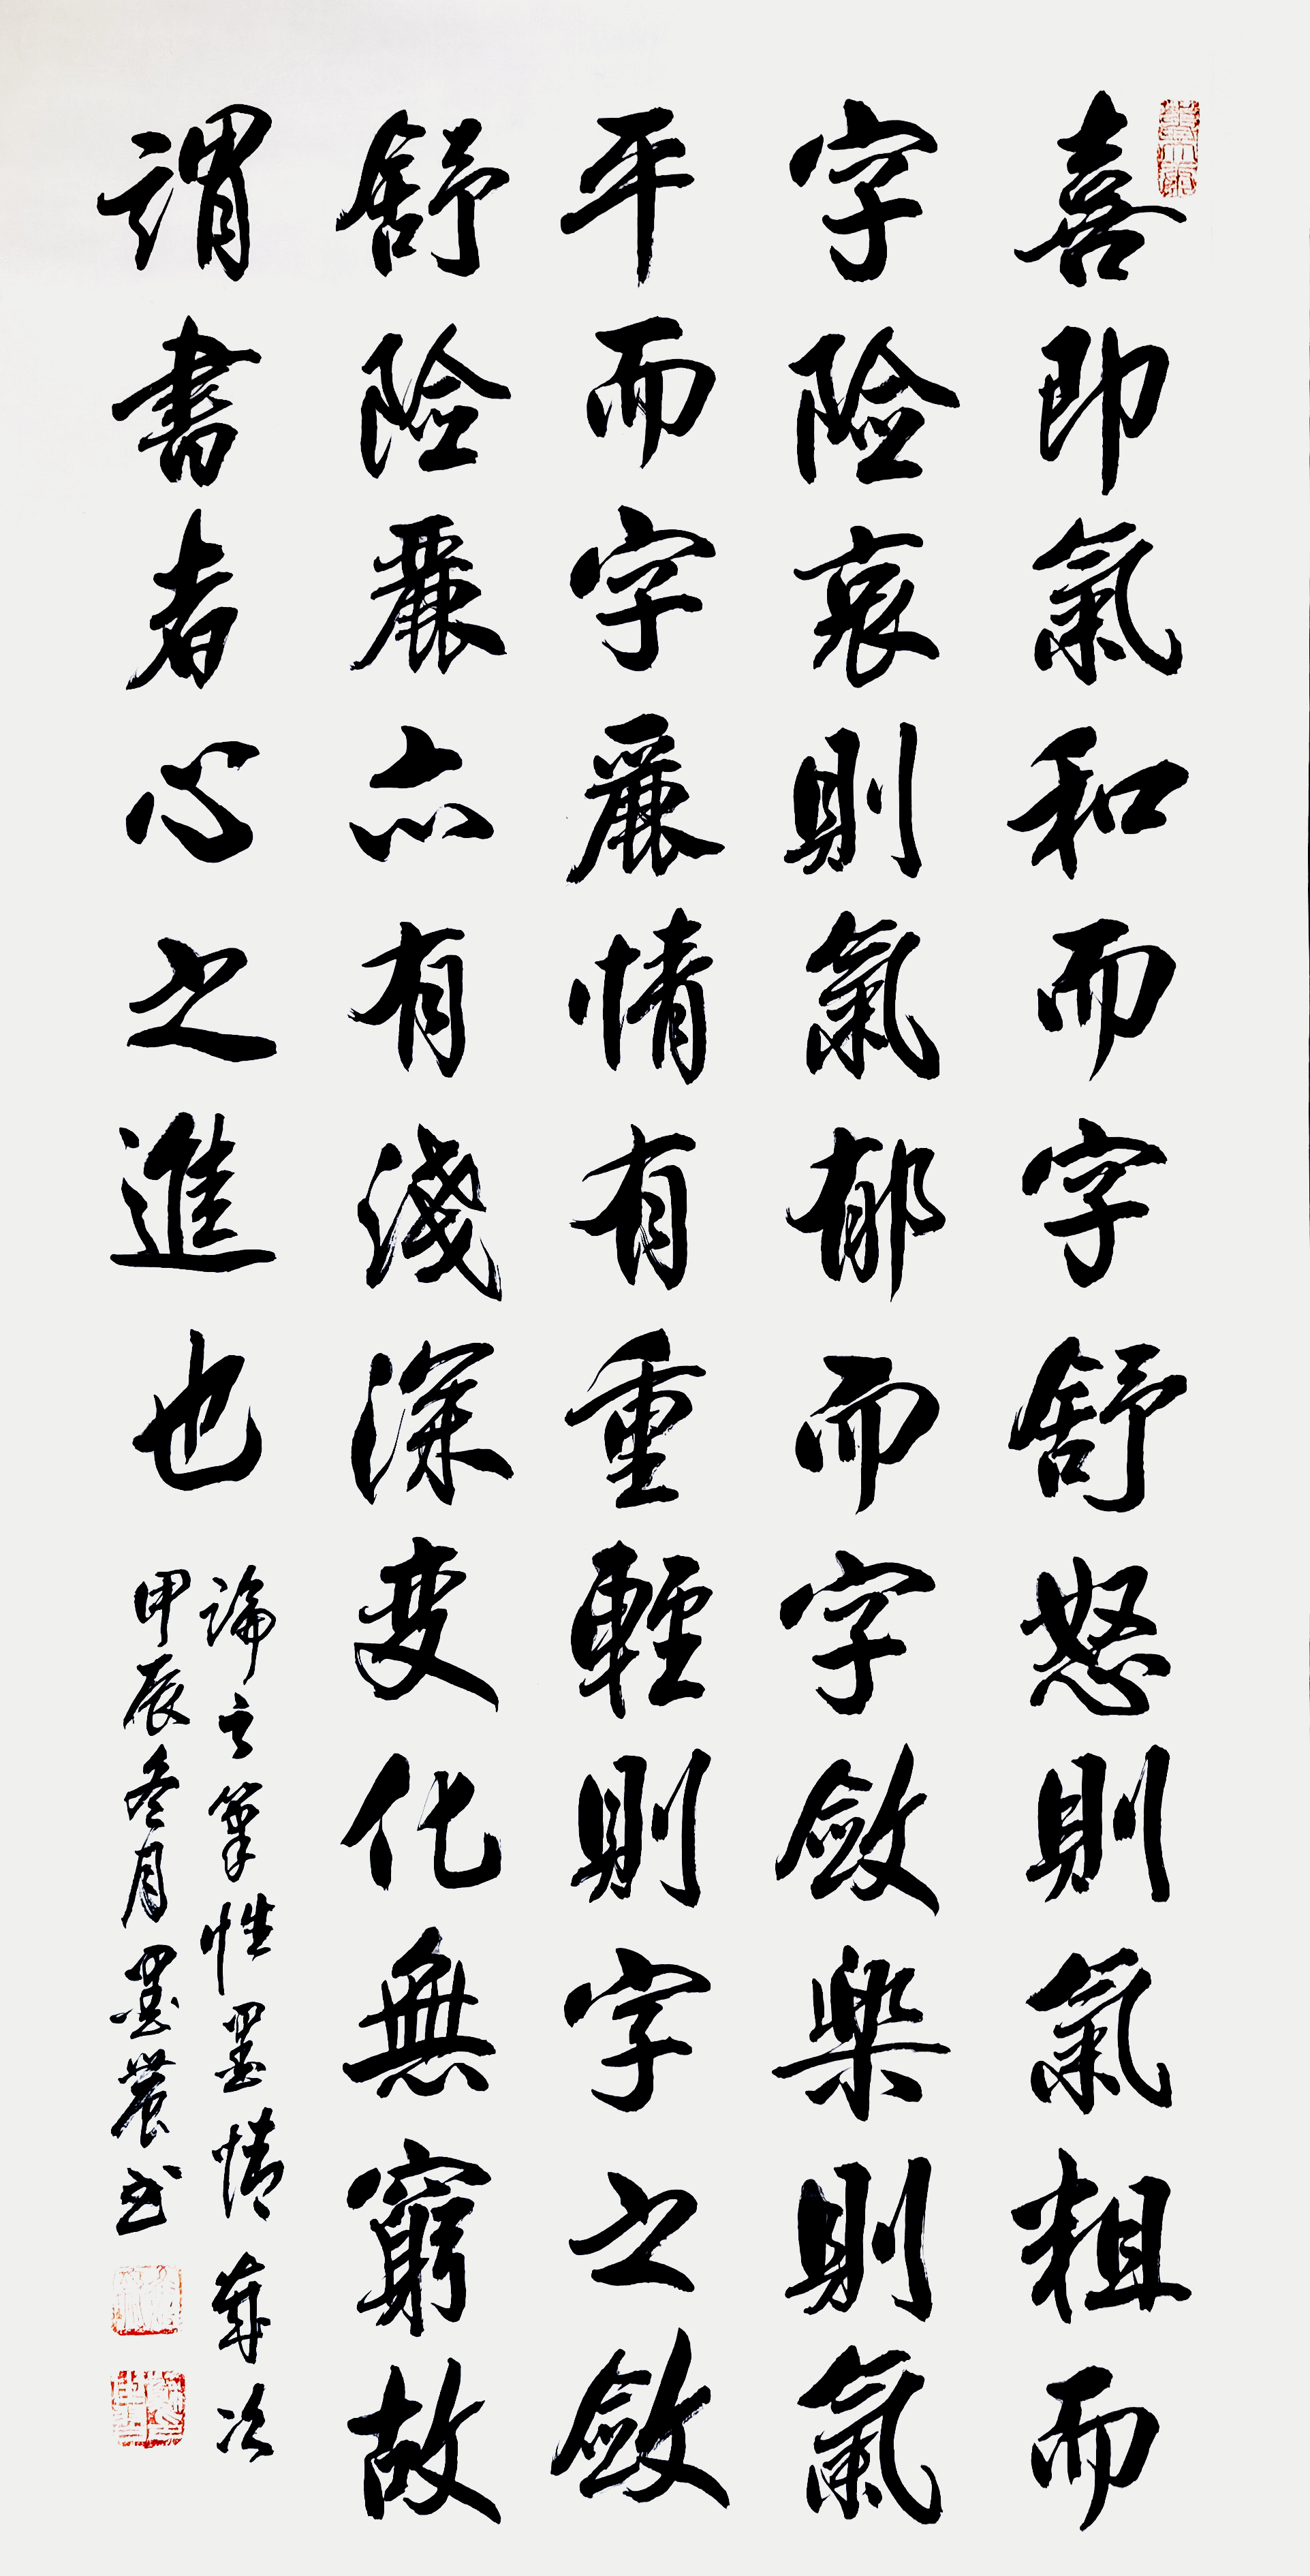 喜即氣和而字舒怒則氣粗而
字險哀則氣郁而字斂樂則氣
平而字麗情有重輕則字之斂
舒險麗亦有淺深變化無窮故
謂書者心之進也
論之筆性墨情
甲辰冬月墨農书